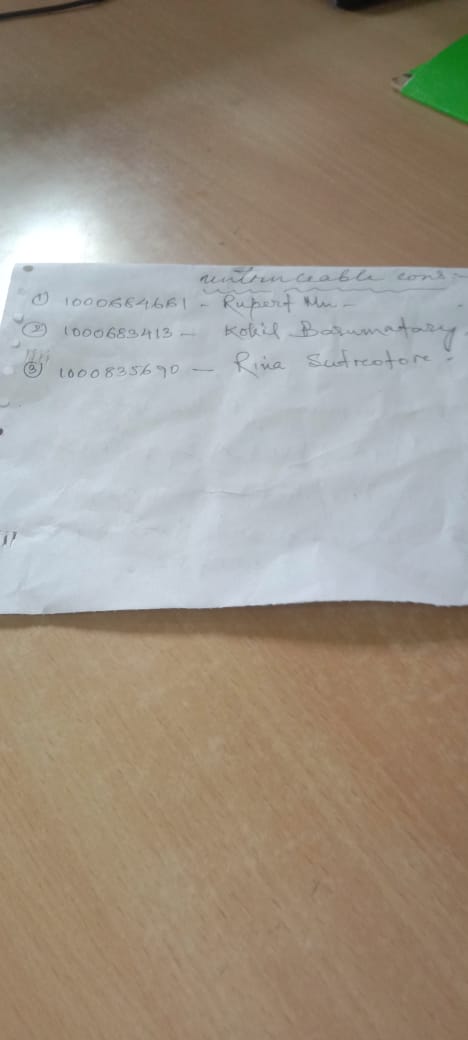 untraceable cons-
① 1000684661 - Rupert Mu-
② 1000683413 - Kokil Basumatary
③ 1000835690 - Rina Sutreotore.